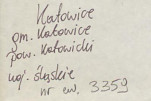 Katowice
gm. Katowice
pow. Katowicki
woj. śląskie
nr ew. 3359